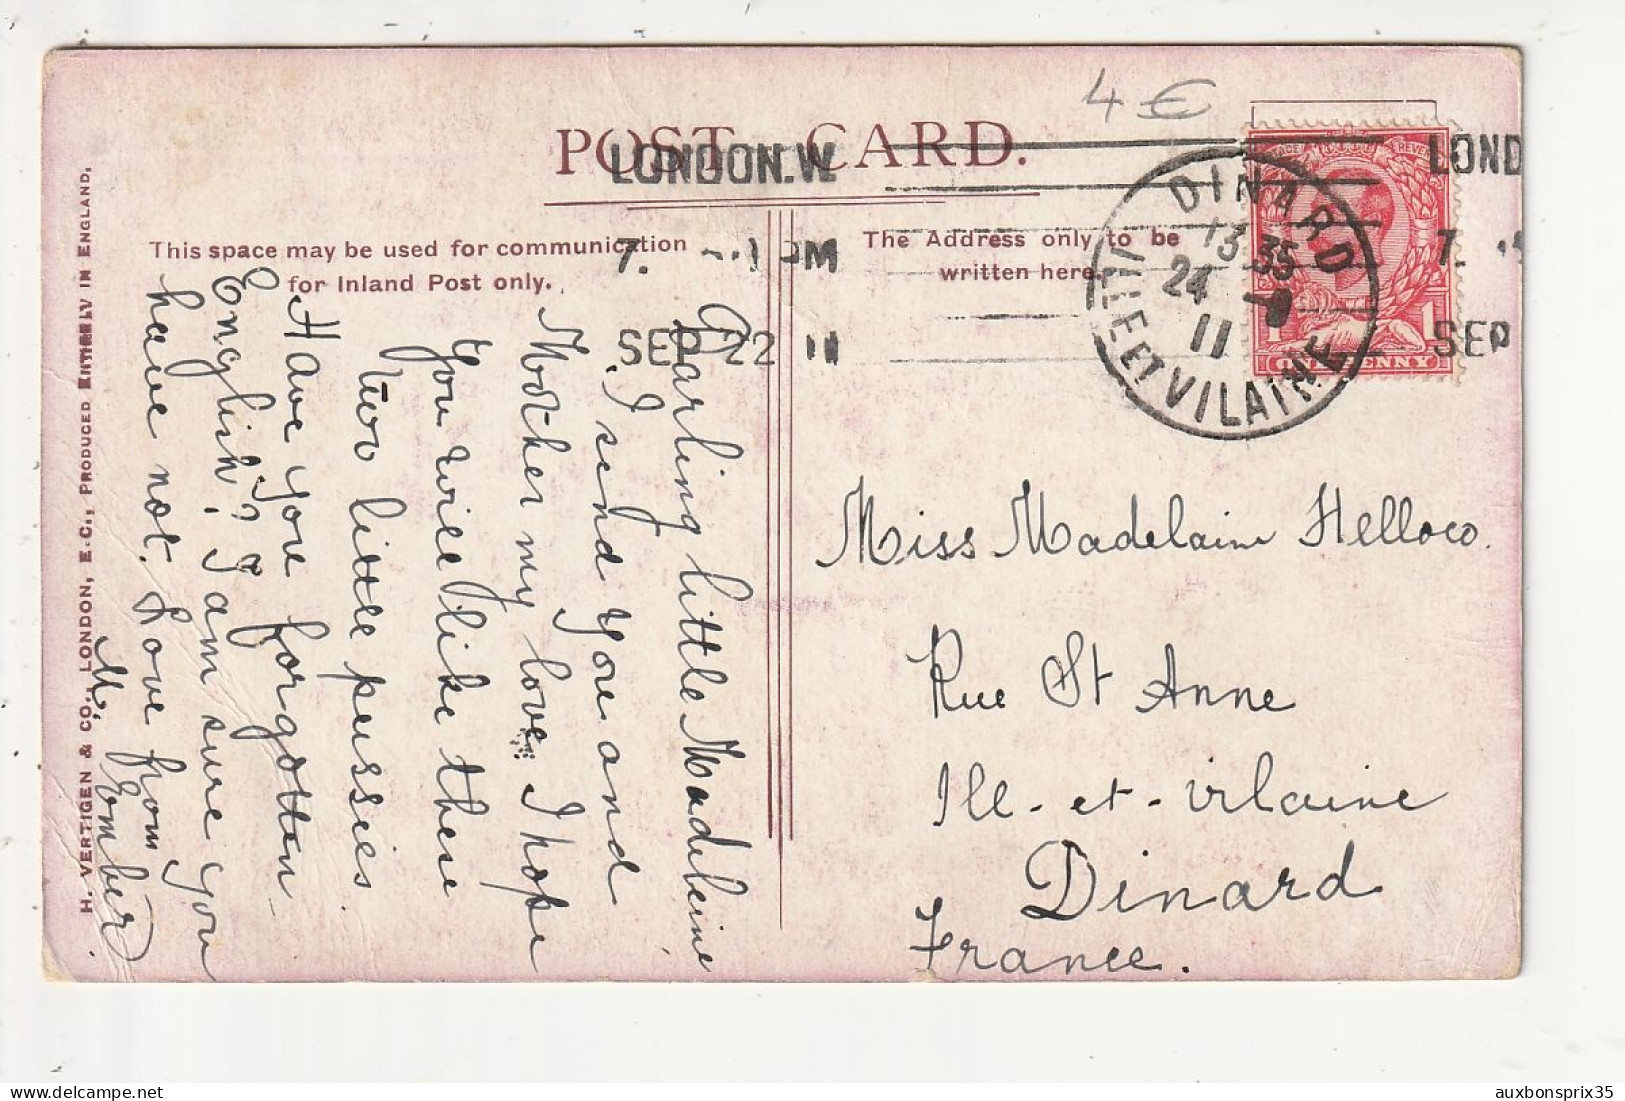 4 €
POST CARD.
LONDON.W
LOND
This space may be used for communication
for Inland Post only.
The Address only to be
written here.
7. PM
7.
SEP 22 11
SEP
DINARD
13 35
24
11
ILLE ET VILAINE
ONE PENNY
Darling little Madeleine
I send you and
Mother my love. I hope
you will like these
two little pussies
Have you forgotten
English? I am sure you
have not. Love from
Miss Madelaine Helloco.
Rue St Anne
Ill-et-vilaine
Dinard
France.
H. VERTIGEN & CO., LONDON, E.C., PRODUCED ENTIRELY IN ENGLAND.
auxbonsprix35